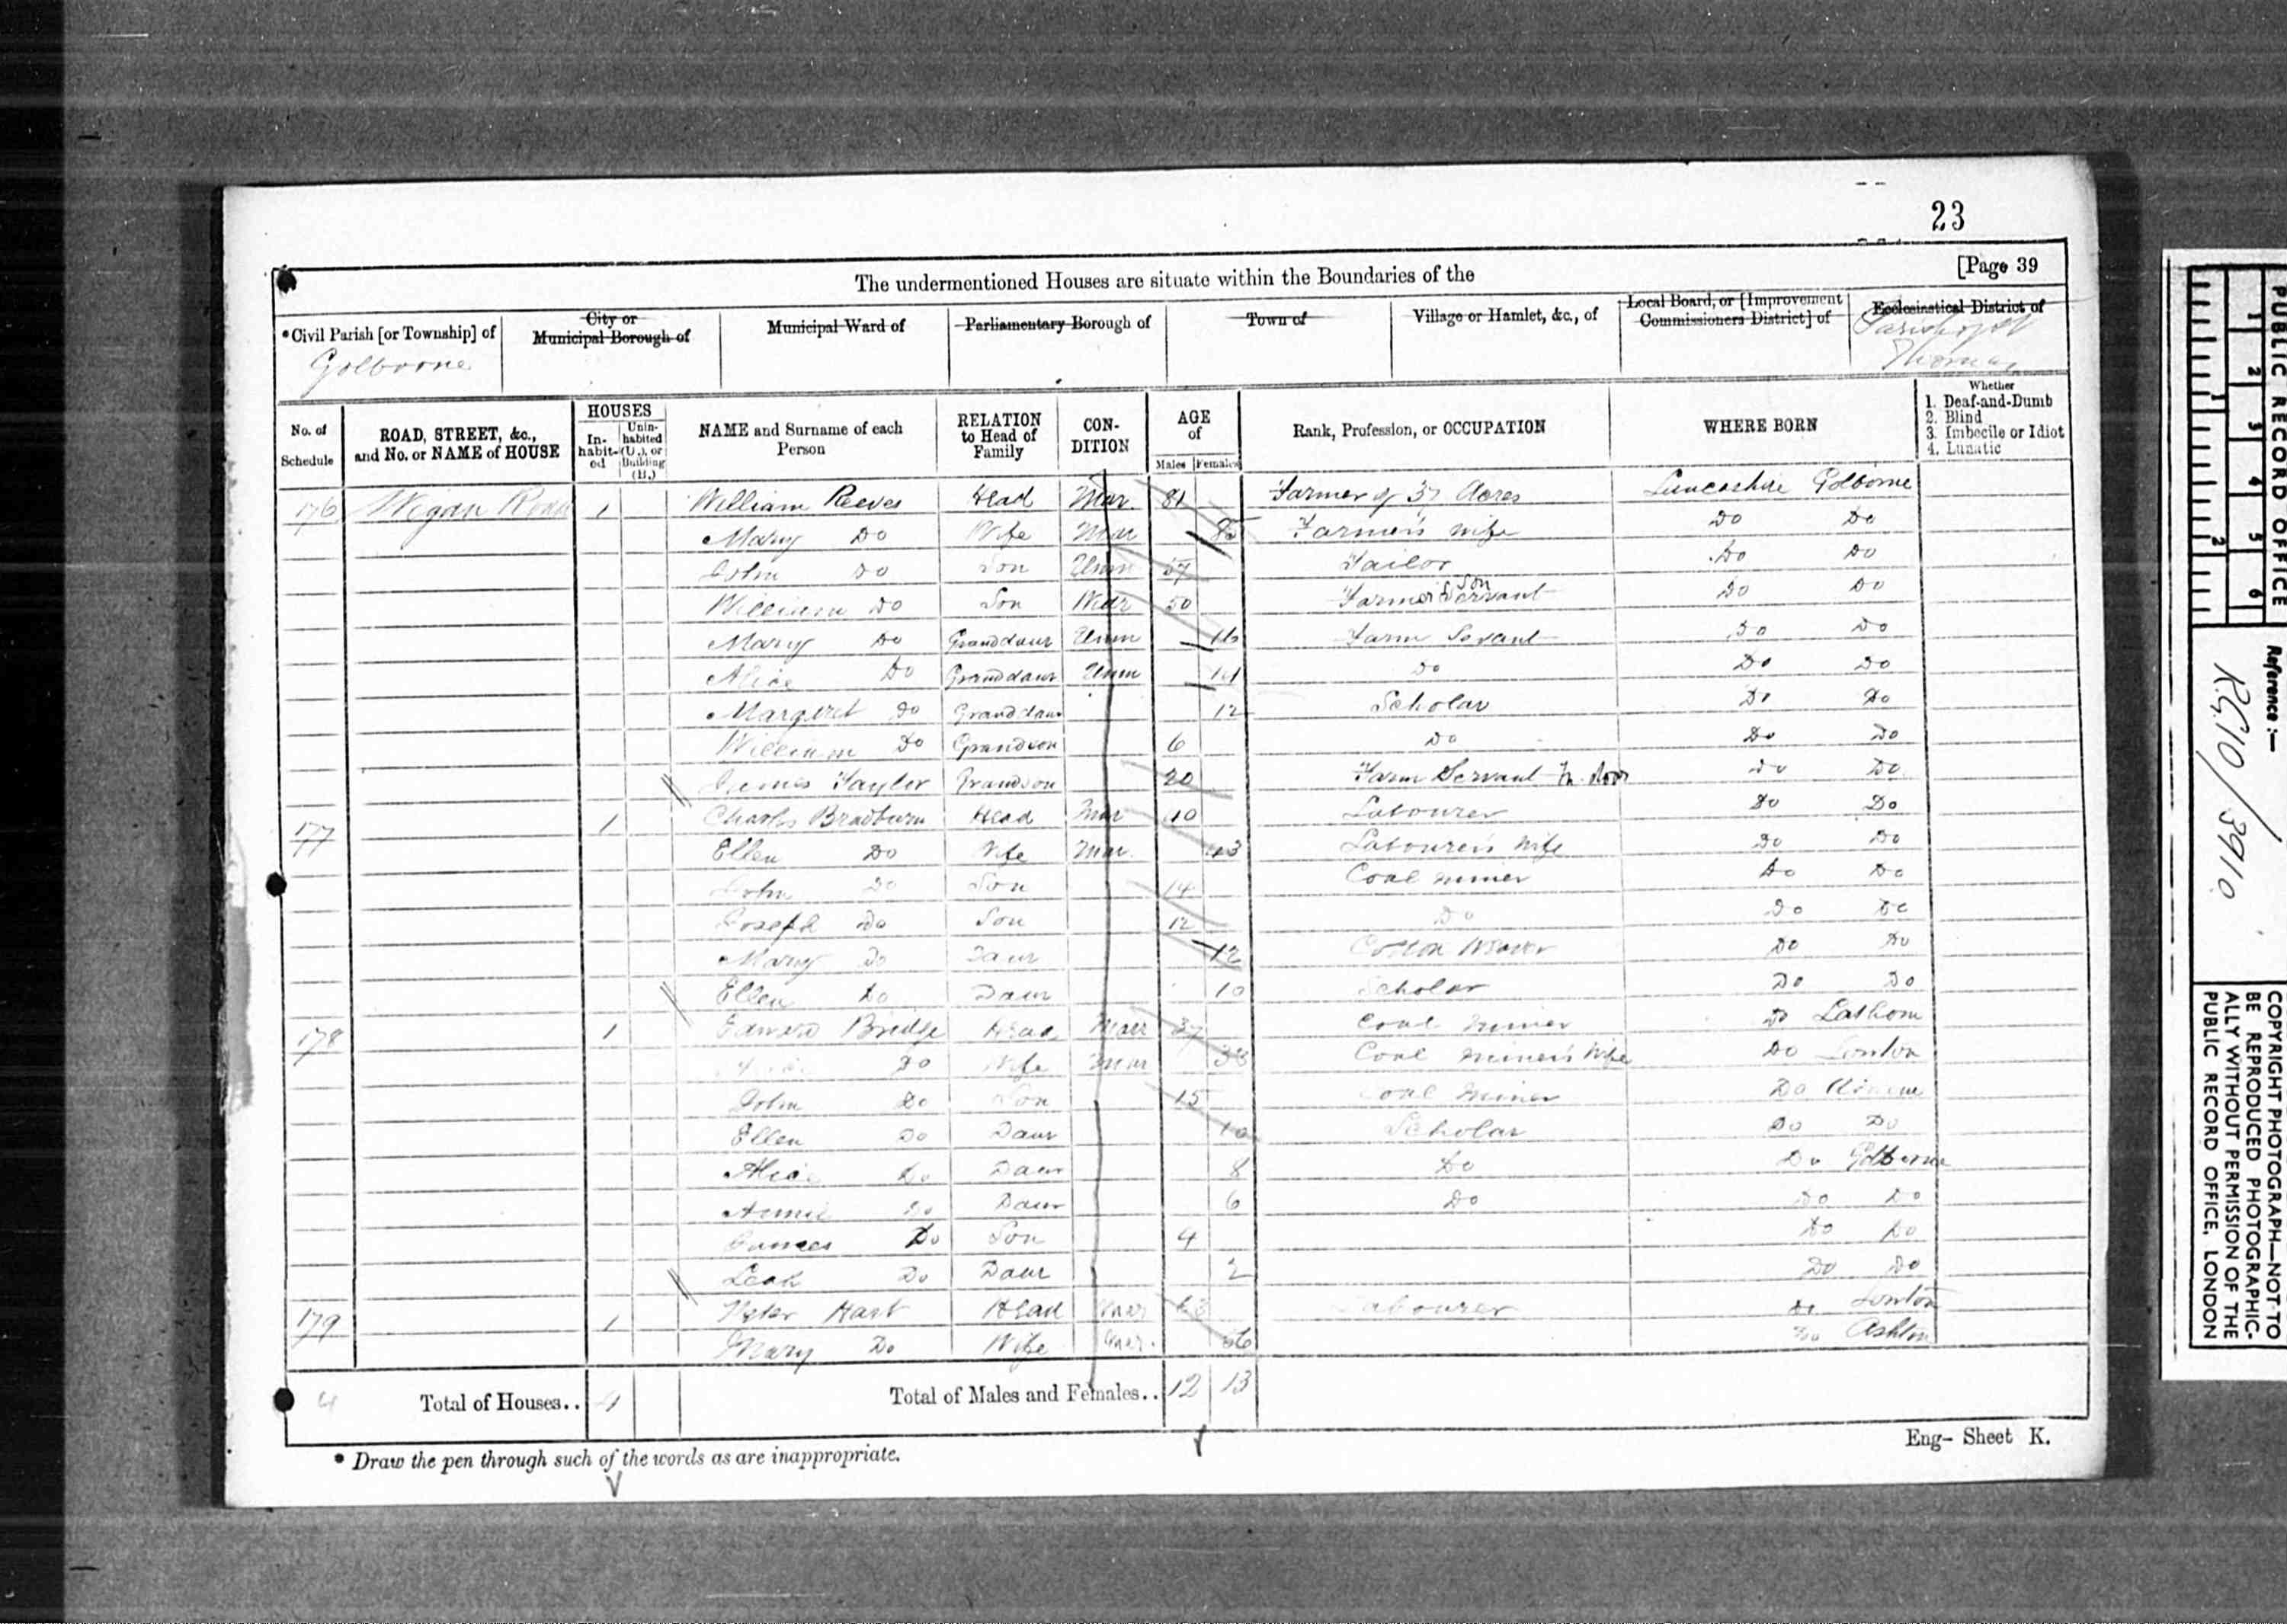 23
The undermentioned Houses are situate within the Boundaries of the [Page 39
*Civil Parish [or Township] of City or Municipal Borough of Municipal Ward of Parliamentary Borough of Town of Village or Hamlet, &c., of Local Board, or [Improvement Commissioners District] of Ecclesiastical District of
Golborne Parish of St Thomas
No. of Schedule ROAD, STREET, &c., and No. or NAME of HOUSE HOUSES In-habit-ed Unin-habited (U.), or Building (B.) NAME and Surname of each Person RELATION to Head of Family CON-DITION AGE of Males Females Rank, Profession, or OCCUPATION WHERE BORN Whether 1. Deaf-and-Dumb 2. Blind 3. Imbecile or Idiot 4. Lunatic
176 Wigan Road 1 William Reeves Head Mar. 81 Farmer of 37 Acres Lancashire Golborne
Mary Do Wife Mar 85 Farmer's Wife Do Do
John Do Son Unm 57 Tailor Do Do
William Do Son Widr 50 Farmer Son Servant Do Do
Mary Do Granddaur Unm 16 Farm Servant Do Do
Alice Do Granddaur Unm 14 Do Do Do
Margaret Do Granddaur 12 Scholar Do Do
William Do Grandson 6 Do Do Do
James Taylor Grandson 20 Farm Servant In door Do Do
177 1 Charles Bradburn Head Mar 40 Labourer Do Do
Ellen Do Wife Mar. 43 Labourer's Wife Do Do
John Do Son 14 Coal Miner Do Do
Joseph Do Son 12 Do Do Do
Mary Do Daur 12 Cotton Do Do
Ellen Do Daur 10 Scholar Do Do
178 1 Edward Bridge Head Marr 37 Coal Miner Do Lathom
Do Wife Mar 38 Coal Miner's Wife Do Lowton
John Do Son 15 Coal Miner Do
Ellen Do Daur 10 Scholar Do Do
Alice Do Daur 8 Do Do Golborne
Annie Do Daur 6 Do Do Do
James Do Son 4 Do Do
Leah Do Daur 2 Do Do
179 1 Peter Hart Head Mar 63 Labourer Do Lowton
Mary Do Wife Mar. 56 Do Ashton
4 Total of Houses.. 4 Total of Males and Females.. 12 13
* Draw the pen through such of the words as are inappropriate.
Eng- Sheet K.
PUBLIC RECORD OFFICE
1 2 3 4 5 6
1 2
Reference :—
R.G.10/3910
COPYRIGHT PHOTOGRAPH—NOT TO BE REPRODUCED PHOTOGRAPHIC-ALLY WITHOUT PERMISSION OF THE PUBLIC RECORD OFFICE, LONDON